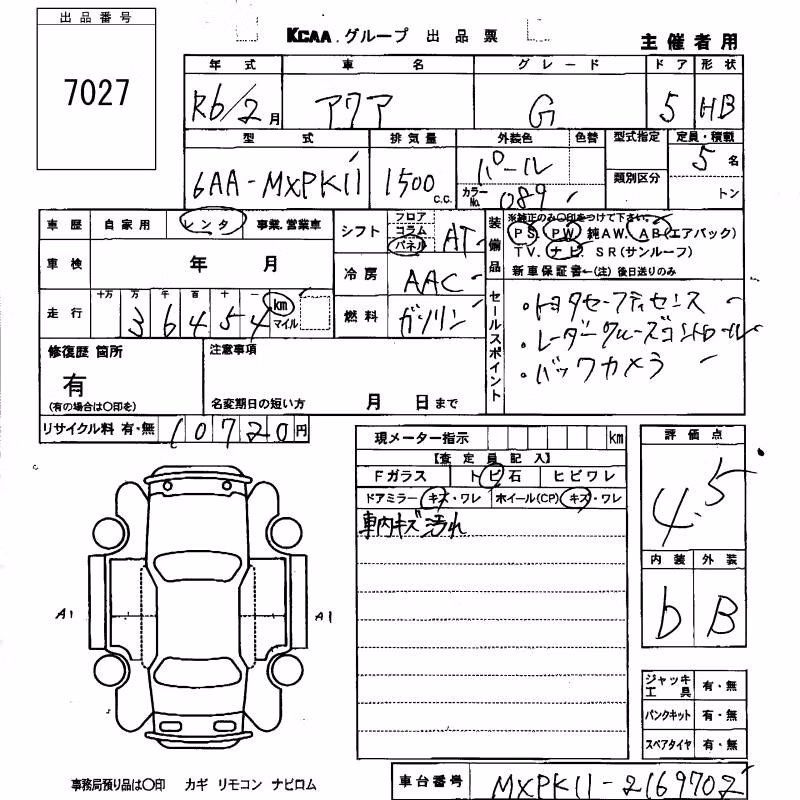 出品番号
7027
KCAA.グループ 出品票
主催者用
年式 車名 グレード ドア 形状
R6/2月 アクア G 5 HB
型式 排気量 外装色 色替 型式指定 定員・積載
6AA-MXPK11 1500 c.c. パール 類別区分 5名
カラーNo. 089 トン
車歴 自家用 レンタ 事業.営業車
車検 年 月
走行 十万 万 千 百 十 一
3 6 4 5 4 km マイル
シフト フロア コラム パネル AT
冷房 AAC
燃料 ガソリン
装備品
※純正のみ○印をつけて下さい。
PS. PW. 純AW. AB(エアバック)
TV. ナビ. SR(サンルーフ)
新車保証書←(注)後日送りのみ
セールスポイント
・トヨタセーフティセンス
・レーダークルーズコントロール
・バックカメラ
修復歴 箇所
有
(有の場合は○印を)
注意事項
名変期日の短い方 月 日まで
リサイクル料 有・無 10720円
現メーター指示 km
【査定員記入】
Fガラス トビ石 ヒビワレ
ドアミラー キズ・ワレ ホイール(CP) キズ・ワレ
車内キズ汚れ
評価点
4.5
内装 外装
b B
A1 A1
ジャッキ工具 有・無
パンクキット 有・無
スペアタイヤ 有・無
事務局預り品は○印 カギ リモコン ナビロム
車台番号 MXPK11-2169702